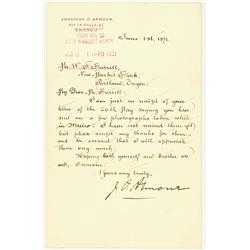 JONATHAN O. ARMOUR,
205 LA SALLE ST.
CHICAGO.
June 1st, 1897.
Mr. W. F. Burrell,
New Market Block,
Portland, Oregon.
My Dear Mr. Burrell:
I am just in receipt of your
letter of the 26th May saying you have
sent on a few photographs taken while
in Mexico. I have not received them yet
but please accept my thanks for them and
be assured that I will appreciate
them very much.
Hoping both yourself and brother are
well, I remain,
Yours very truly,
J. O. Armour